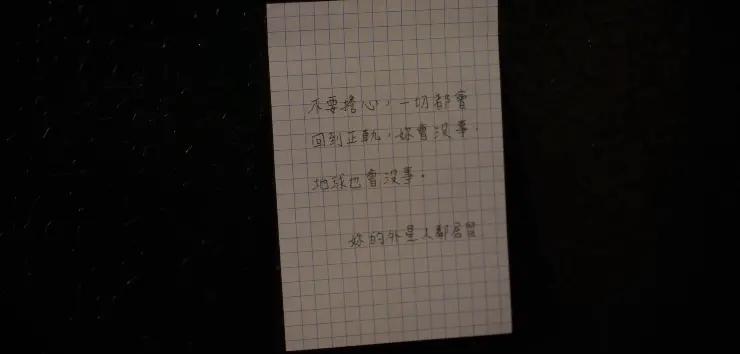 不要擔心，一切都會
回到正軌，妳會沒事，
地球也會沒事。
妳的外星人鄰居留